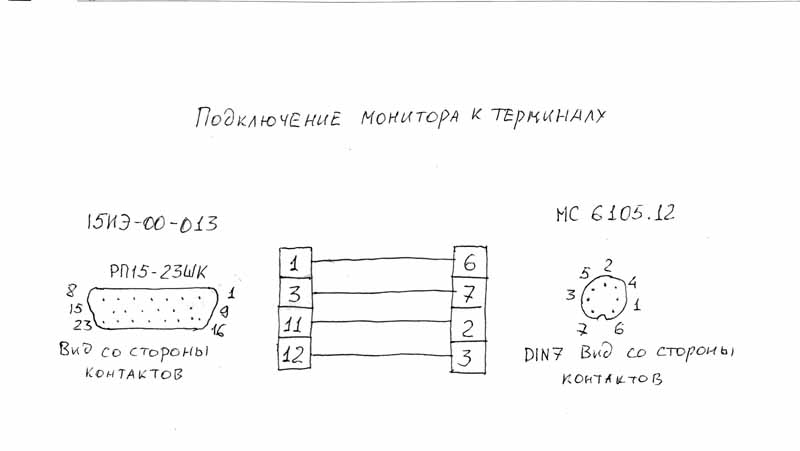 Подключение монитора к терминалу
15ИЭ-00-013
МС 6105.12
РП15-23ШК
8
1
15
9
23
16
Вид со стороны
контактов
1
6
3
7
11
2
12
3
2
5
4
3
1
7
6
DIN7 Вид со стороны
контактов